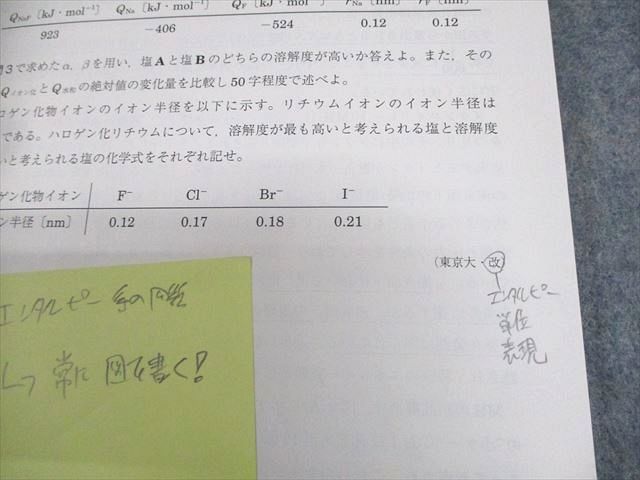 Q_NaF [kJ・mol⁻¹] Q_Na [kJ・mol⁻¹] Q_F [kJ・mol⁻¹] r_Na [nm] r_F [nm]
923 −406 −524 0.12 0.12
3で求めたα,βを用い,塩Aと塩Bのどちらの溶解度が高いか答えよ。また,その
Qイオン化とQ水和の絶対値の変化量を比較し50字程度で述べよ。
ロゲン化物イオンのイオン半径を以下に示す。リチウムイオンのイオン半径は
である。ハロゲン化リチウムについて,溶解度が最も高いと考えられる塩と溶解度
いと考えられる塩の化学式をそれぞれ記せ。
ゲン化物イオン F⁻ Cl⁻ Br⁻ I⁻
ン半径〔nm〕 0.12 0.17 0.18 0.21
(東京大・改)
エンタルピー
単位
表現
エンタルピー 系の
↳ 常に 図を書く!